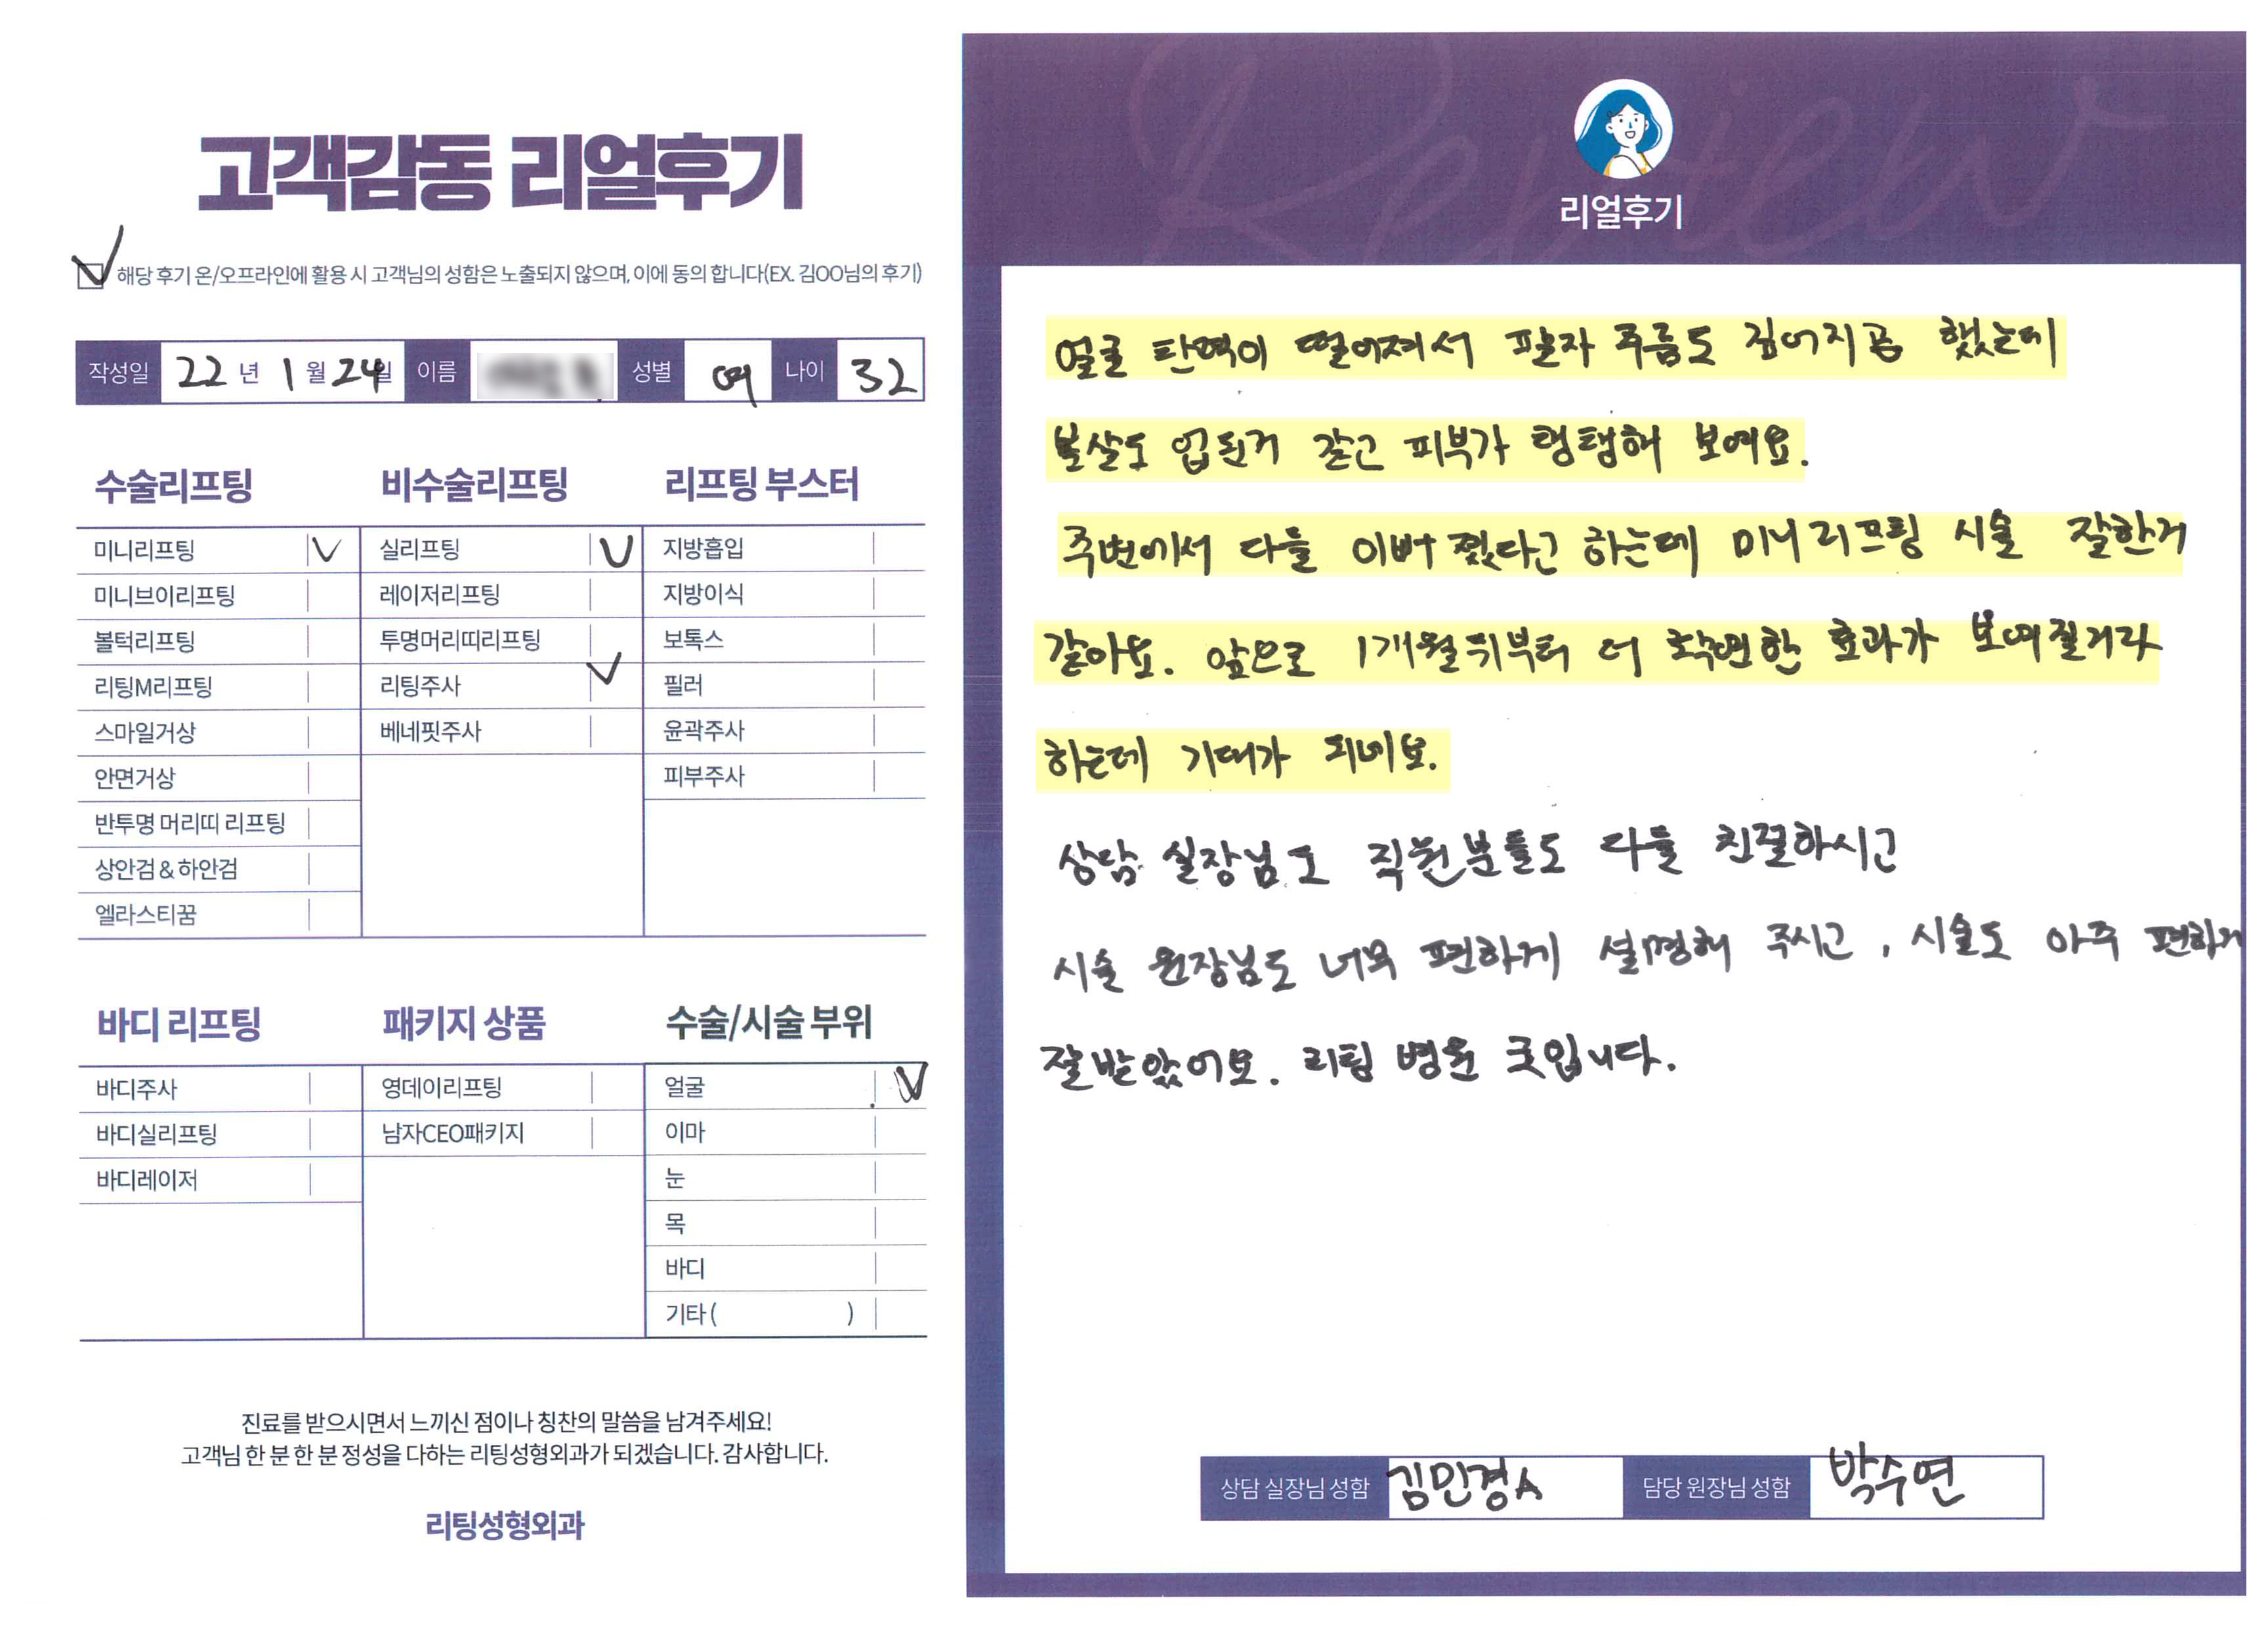 고객감동 리얼후기
해당 후기 온/오프라인에 활용 시 고객님의 성함은 노출되지 않으며, 이에 동의 합니다(EX. 김OO님의 후기)
작성일 22 년 1 월 24 일 이름 성별 여 나이 32
수술리프팅
미니리프팅 V
미니브이리프팅
볼턱리프팅
리팅M리프팅
스마일거상
안면거상
반투명 머리띠 리프팅
상안검 & 하안검
엘라스티꿈
비수술리프팅
실리프팅 V
레이저리프팅
투명머리띠리프팅
리팅주사 V
베네핏주사
리프팅 부스터
지방흡입
지방이식
보톡스
필러
윤곽주사
피부주사
바디 리프팅
바디주사
바디실리프팅
바디레이저
패키지 상품
영데이리프팅
남자CEO패키지
수술/시술 부위
얼굴 V
이마
눈
목
바디
기타 ( )
진료를 받으시면서 느끼신 점이나 칭찬의 말씀을 남겨주세요!
고객님 한 분 한 분 정성을 다하는 리팅성형외과가 되겠습니다. 감사합니다.
리팅성형외과
Review
리얼후기
얼굴 탄력이 떨어져서 팔자 주름도 깊어지곤 했는데
볼살도 업된거 같고 피부가 탱탱해 보여요.
주변에서 다들 이뻐 졌다고 하는데 미니리프팅 시술 잘한거
같아요. 앞으로 1개월뒤부터 더 확연한 효과가 보여질거라
하는데 기대가 되네요.
상담 실장님도 직원분들도 다들 친절하시고
시술 원장님도 너무 편하게 설명해 주시고, 시술도 아주 편하게
잘받았어요. 리팅 병원 굿입니다.
상담 실장님 성함 김민경A 담당 원장님 성함 박수연